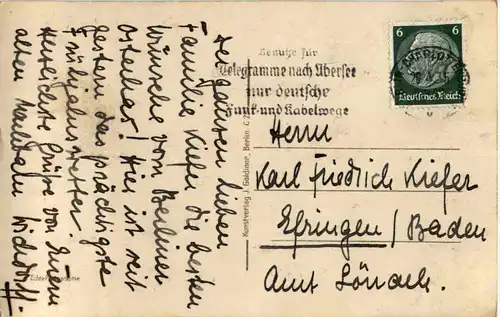 Der ganzen lieben
Familie Kiefer die besten
Wünsche vom Berliner
Osterhas! Hier ist seit
gestern das prächtigste
Frühjahrswetter.
Herzlichste Grüße von Eurem
alten Nachbarn
Echte Photographie
Kunstverlag J. Goldiner, Berlin C
Benutze für
Telegramme nach Übersee
nur deutsche
Funk- und Kabelwege
6 6
Deutsches Reich
Herrn
Karl Friedrich Kiefer
Efringen / Baden
Amt Lörrach.